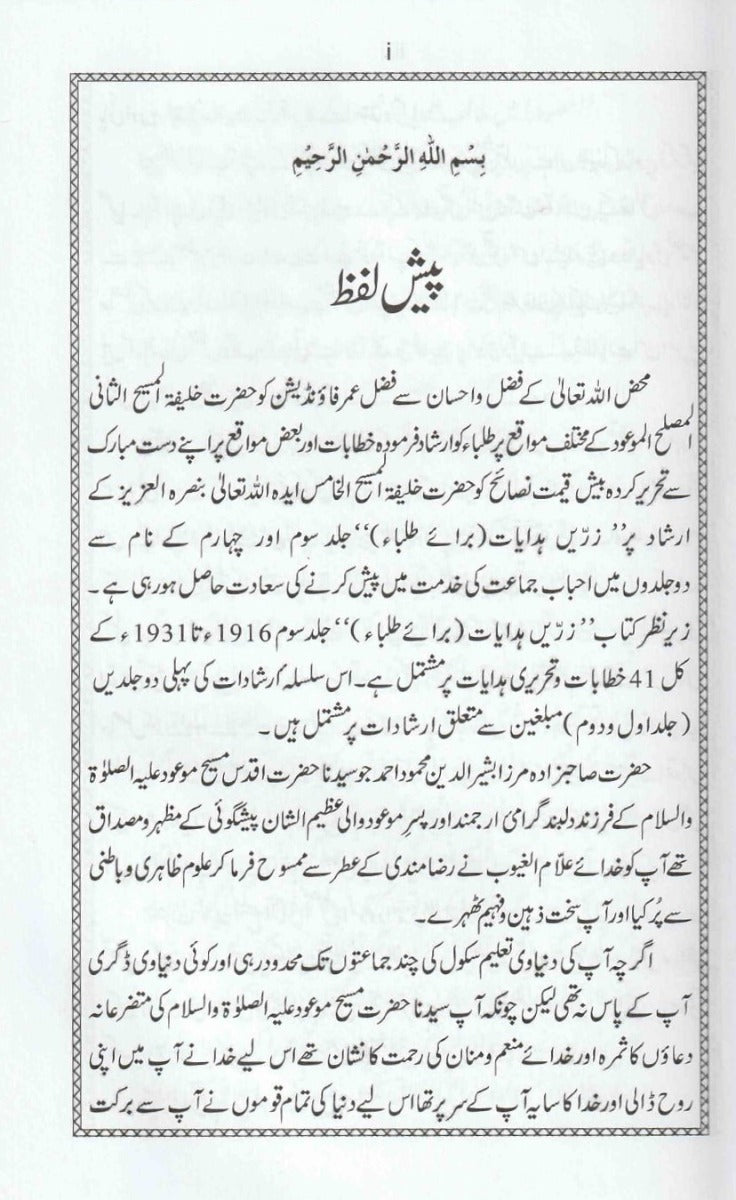 i
بِسْمِ اللّٰهِ الرَّحْمٰنِ الرَّحِيْمِ
پیش لفظ
محض اللہ تعالیٰ کے فضل واحسان سے فضل عمر فاؤنڈیشن کو حضرت خلیفۃ المسیح الثانی
المصلح الموعود کے مختلف مواقع پر طلباء کو ارشاد فرمودہ خطابات اور بعض مواقع پر اپنے دست مبارک
سے تحریر کردہ بیش قیمت نصائح کو حضرت خلیفۃ المسیح الخامس ایدہ اللہ تعالیٰ بنصرہ العزیز کے
ارشاد پر ’’ زرّیں ہدایات (برائے طلباء)‘‘ جلد سوم اور چہارم کے نام سے
دو جلدوں میں احباب جماعت کی خدمت میں پیش کرنے کی سعادت حاصل ہورہی ہے ۔
زیر نظر کتاب ’’ زرّیں ہدایات (برائے طلباء )‘‘ جلد سوم 1916ء تا 1931ء کے
کل 41 خطابات و تحریری ہدایات پر مشتمل ہے۔ اس سلسلۂ ارشادات کی پہلی دو جلدیں
(جلد اول و دوم) مبلغین سے متعلق ارشادات پر مشتمل ہیں ۔
حضرت صاحبزادہ مرزا بشیر الدین محمود احمد جو سیدنا حضرت اقدس مسیح موعود علیہ الصلوٰۃ
والسلام کے فرزند دلبند گرامی ارجمند اور پسر موعود والی عظیم الشان پیشگوئی کے مظہر و مصداق
تھے آپ کو خدائے علّام الغیوب نے رضا مندی کے عطر سے ممسوح فرما کر علوم ظاہری و باطنی
سے پُر کیا اور آپ سخت ذہین و فہیم ٹھہرے۔
اگرچہ آپ کی دنیاوی تعلیم سکول کی چند جماعتوں تک محدود رہی اور کوئی دنیاوی ڈگری
آپ کے پاس نہ تھی لیکن چونکہ آپ سیدنا حضرت مسیح موعود علیہ الصلوٰۃ والسلام کی متضرعانہ
دعاؤں کا ثمرہ اور خدائے منعم و منان کی رحمت کا نشان تھے اس لیے خدا نے آپ میں اپنی
روح ڈالی اور خدا کا سایہ آپ کے سر پر تھا اس لیے دنیا کی تمام قوموں نے آپ سے برکت